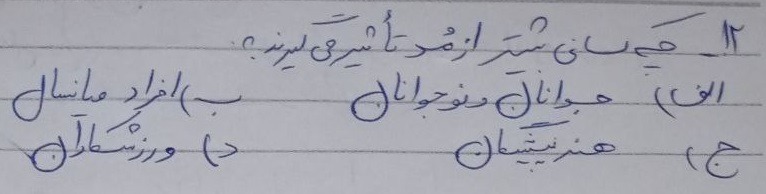 ۱۲_ چه کسانی بیشتر از مُد تأثیر می گیرند؟
الف) جوانان و نوجوانان ب) افراد میانسال
ج) هنرپیشگان د) ورزشکاران